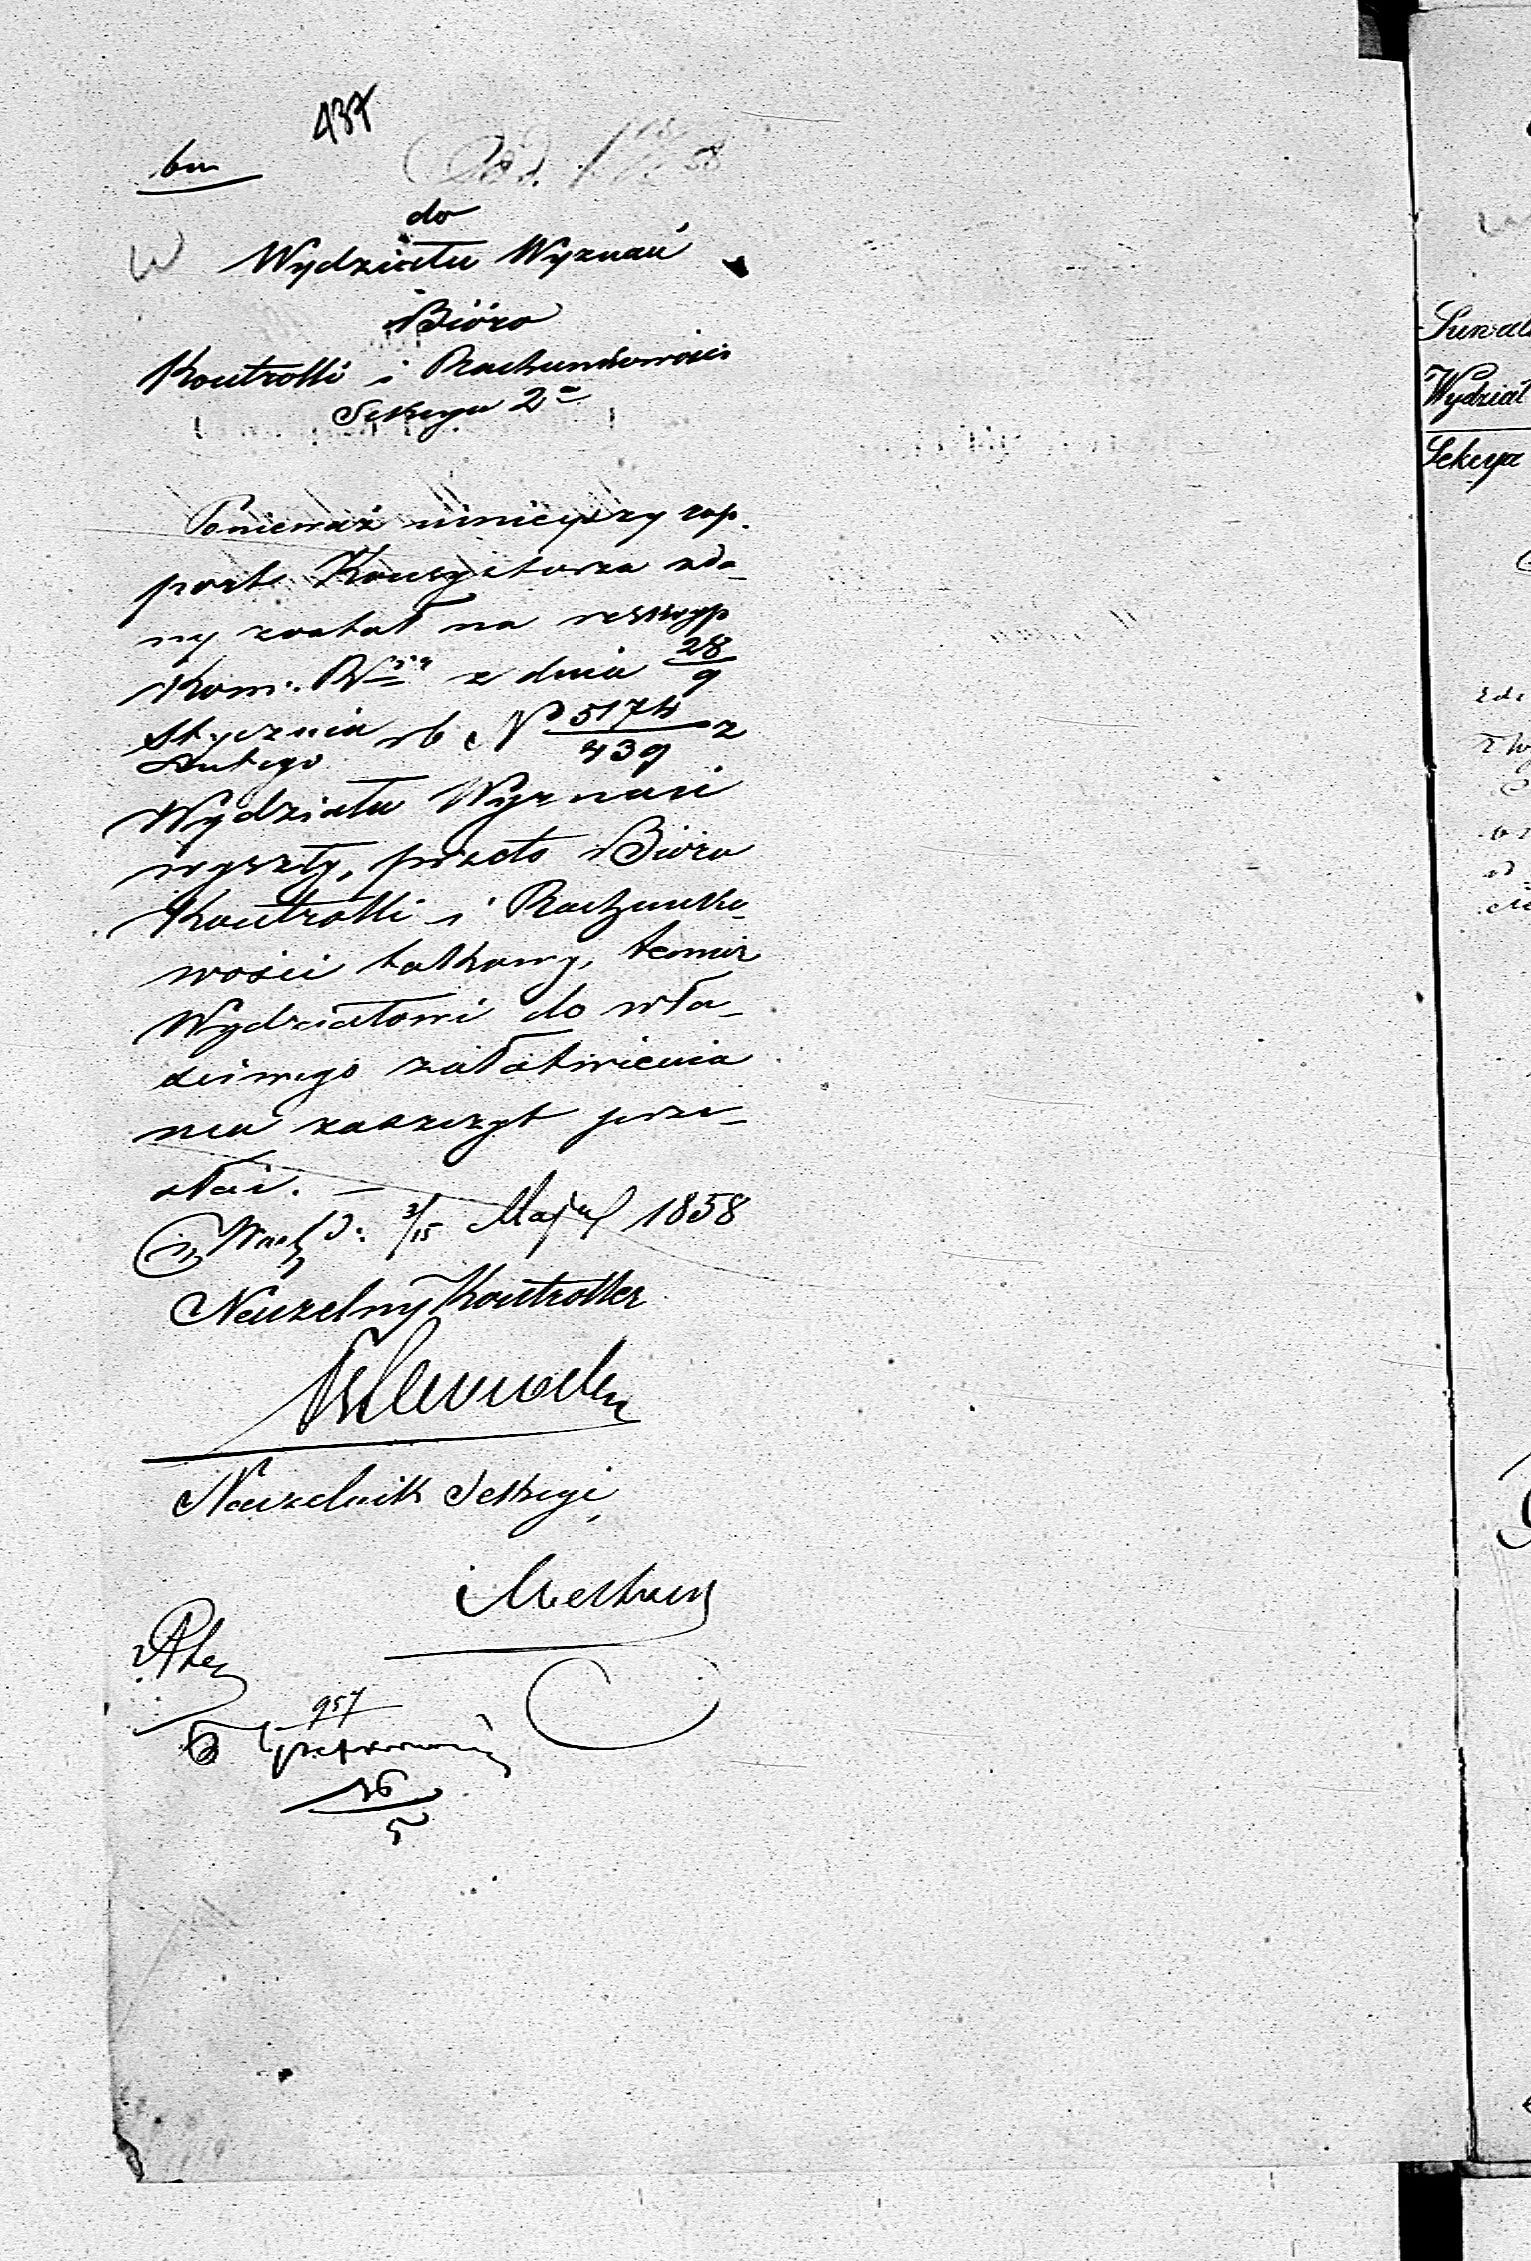 437
bm
do
Wydziału Wyznań
Bióro
Kontrolli i Rachunkowości
Sekcya 2ª
Ponieważ niniejszy rap
port Konsystorza zda
ny został na reskryp
Kom. R z dnia 28/9
Stycznia/Lutego rb N° 5174/439 z
Wydziału Wyznań
wyszły, przeto Bióro
Kontrolli i Rachunko
wości takowy, temuż
Wydziałowi do wła
ściwego załatwienia
ma zaszczyt prze
słać. —
w Warsz d. 3/15 Maja 1858
Naczelny Kontroller
Naczelnik Sekcyi
957
16/5
Wydział
Sekcya